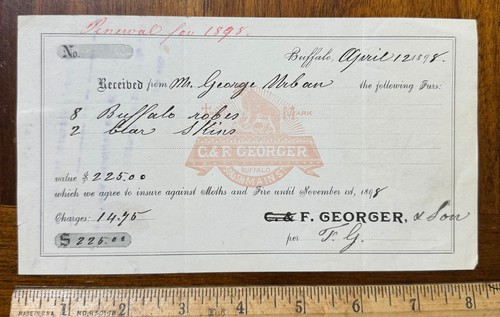 Renewal for 1898.
No.
Buffalo, April 12 1898.
Received from Mr. George Urban the following Furs:
8 Buffalo robes
2 bear Skins
TRADE MARK
C & F. GEORGER
BUFFALO
MAIN ST.
value $ 225.00
which we agree to insure against Moths and Fire until November 1st, 1898
Charges: 14.75
C. & F. GEORGER, & Son
$ 225.00
per F. G.
1 2 3 4 5 6 7 8